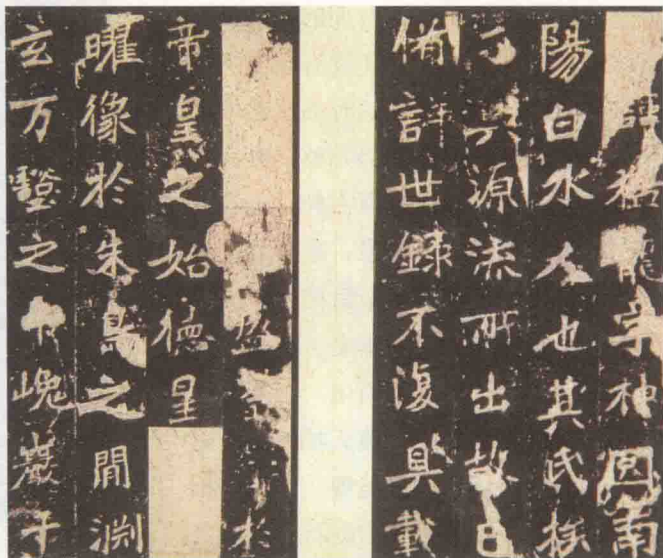 諱猛龍字神冏南
陽白水人也其氏族
分興源流所出故已
備詳世録不復具載
盛於
帝皇之始德星
曜像於朱鳥之閒淵
玄万壑之中巖千